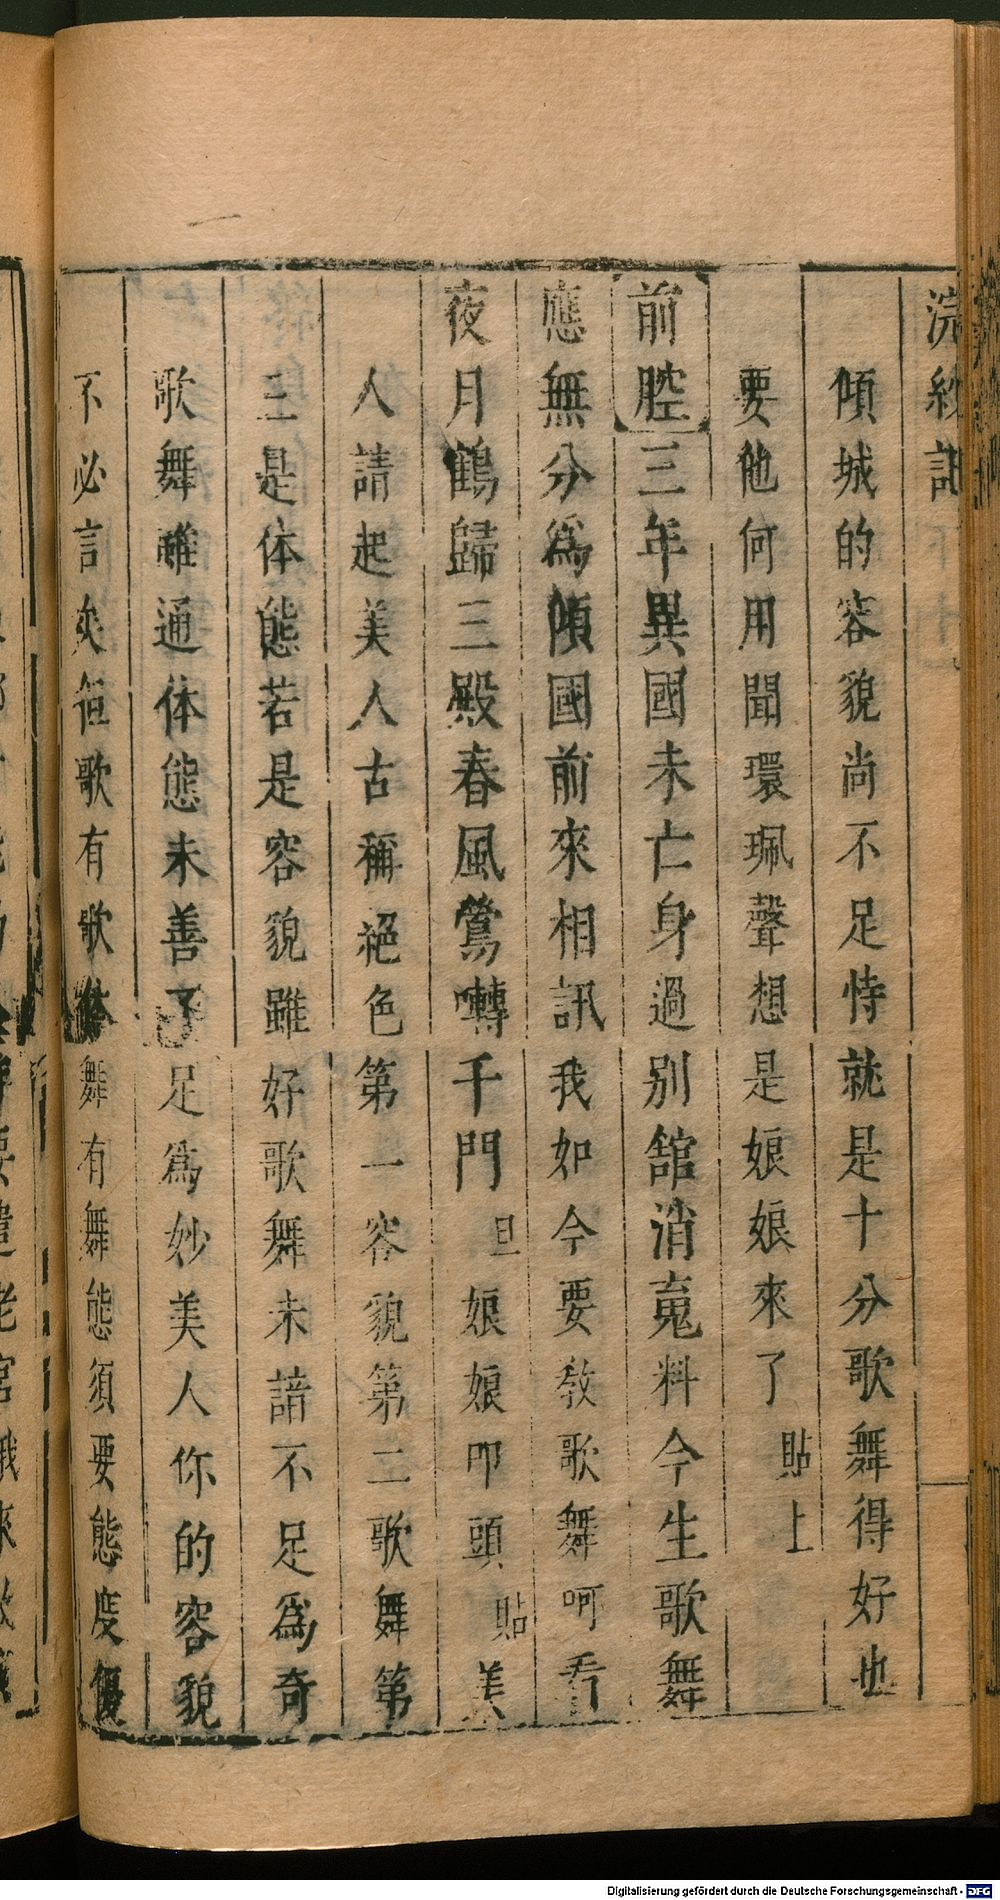 浣紗記
傾城的容貌尚不足恃就是十分歌舞得好也
要他何用聞環珮聲想是娘娘來了貼上
前腔三年異國未亡身過別舘消䰟料今生歌舞
應無分爲傾國前來相訊我如今要敎歌舞呵看
夜月鶴歸三殿春風鶯囀千門旦娘娘叩頭貼美
人請起美人古稱絕色第一容貌第二歌舞第
三是体態若是容貌雖好歌舞未諳不足爲奇
歌舞雖通体態未善不足爲妙美人你的容貌
不必言矣但歌有歌体舞有舞態須要態度優
Digitalisierung gefördert durch die Deutsche Forschungsgemeinschaft - DFG